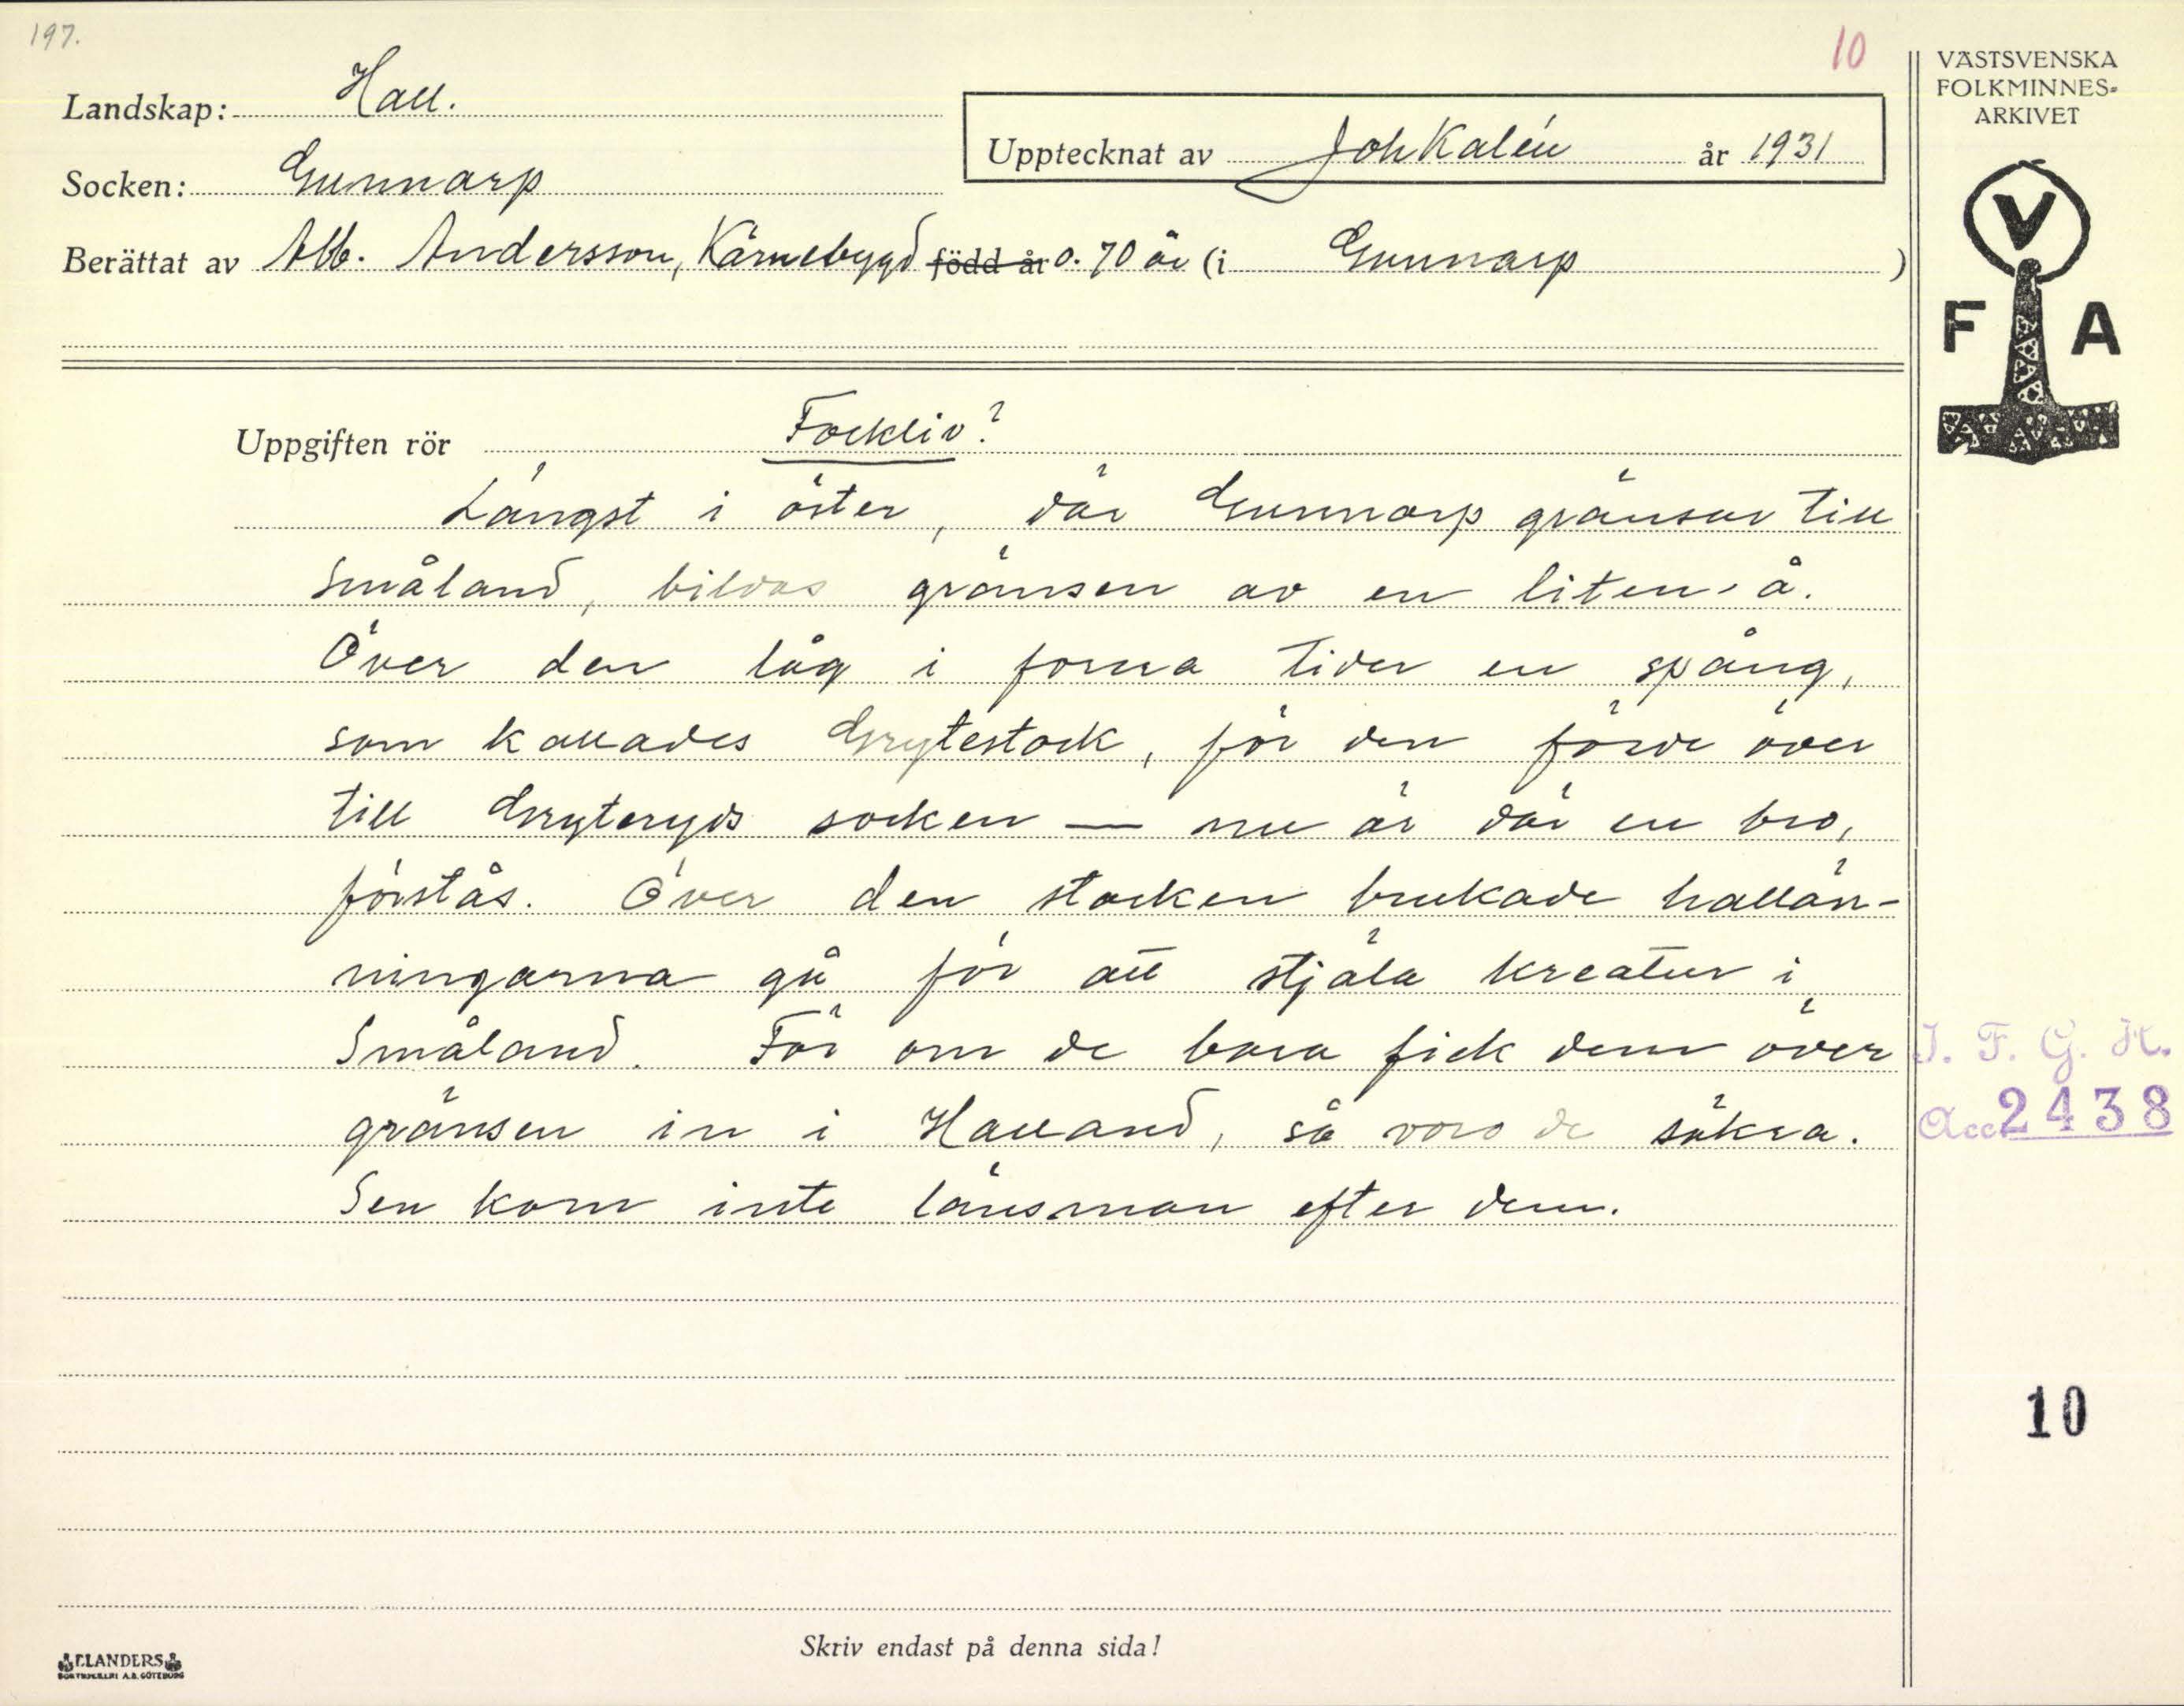 197.
10
Landskap: Hall.
Upptecknat av Joh Kalén år 1931
Socken: Gunnarp
Berättat av Alb. Andersson, Kärnebygd född år o. 70 år (i Gunnarp )
VÄSTSVENSKA
FOLKMINNES-
ARKIVET
V
F A
Uppgiften rör Folkliv?
Längst i öster, där Gunnarp gränsar till
Småland, bildas gränsen av en liten å.
Över den låg i forna tider en spång,
som kallades Grytestock, för den förde över
till Gryteryds socken — nu är där en bro,
förstås. Över den stocken brukade hallän-
ningarna gå för att stjäla kreatur i
Småland. För om de bara fick dem över
gränsen in i Halland, så voro de säkra.
Sen kom inte länsman efter dem.
I. F. G. H.
Acc 2438
10
Skriv endast på denna sida!
ELANDERS
BOKTRYCKERI A.B. GÖTEBORG